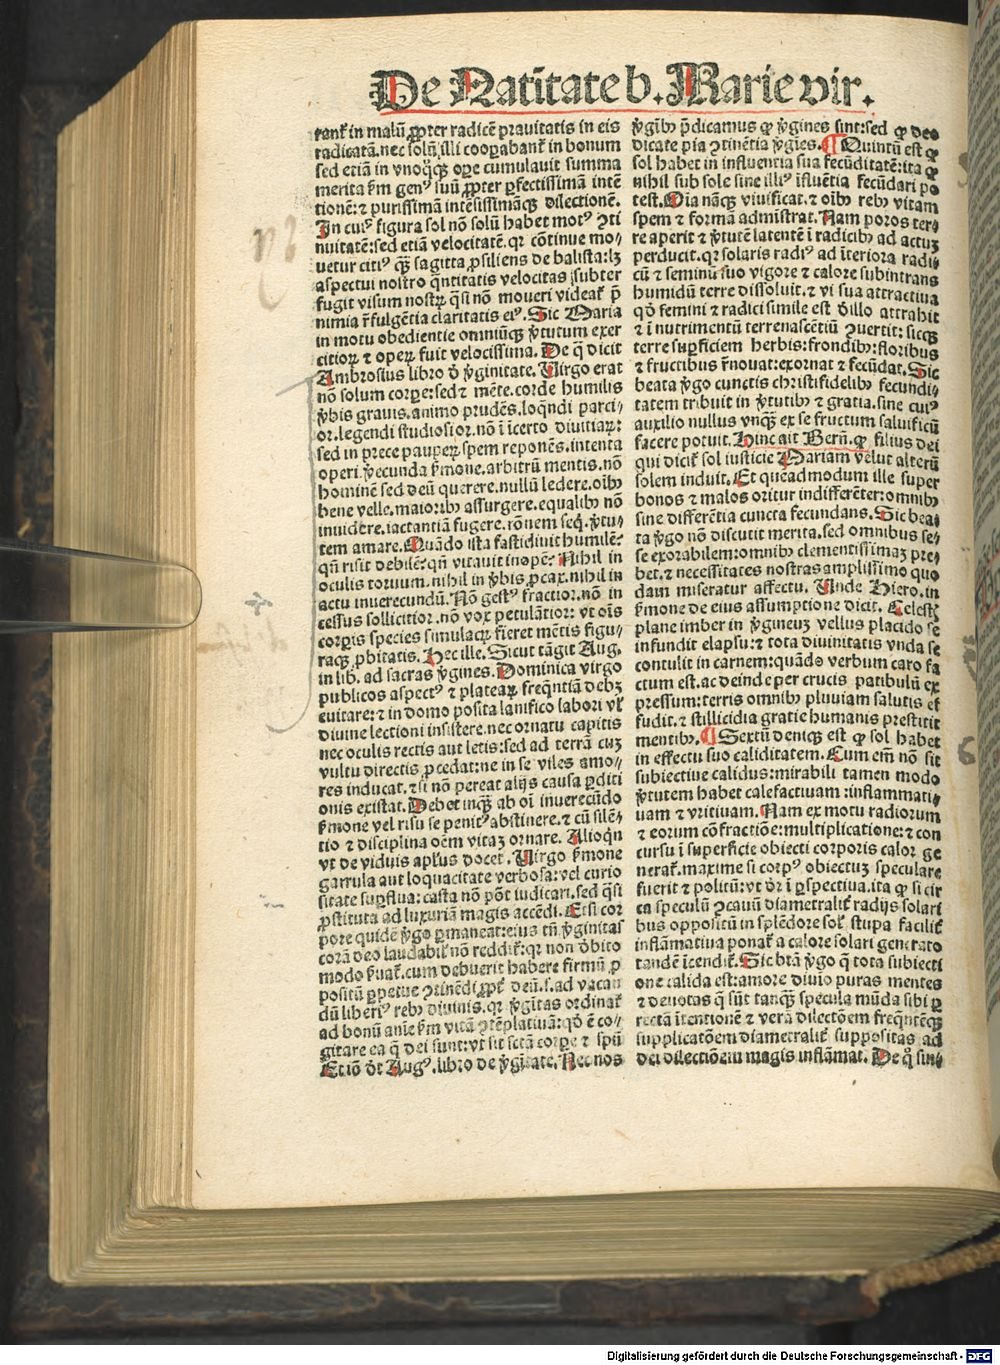 De Natiuitate b. Marie vir.
rant̃ in malũ ꝓpter radicẽ prauitatis in eis
radicatã. nec solũ illi cooꝑabant̃ in bonum
sed etiã in vnoq̃qꝫ oꝑe cumulauit summa
merita ẜm genꝰ suũ ꝓpter ꝑfectissimã intẽ
tionẽ: ⁊ purissimã intẽsissimãqꝫ dilectionẽ.
In cuiꝰ figura sol nõ solũ habet motꝰ ꝯti
nuitatẽ: sed etiã velocitatẽ. qr cõtinue mo⸗
uetur citiꝰ qꝫ̃ sagitta ꝓsiliens de balista: lꝫ
aspectui nostro q̃ntitatis velocitas subter
fugit visum nostrꝝ q̃si nõ moueri videat̃ p̃
nimia r̃fulgẽtia claritatis eiꝰ. Sic Maria
in motu obedientie omniũqꝫ v̓tutum exer
citioꝝ ⁊ opeꝝ fuit velocissima. De q̃ dicit
Ambrosius libro d̓ v̓ginitate. Uirgo erat
nõ solum corꝑe: sed ⁊ mẽte. corde humilis
v̓bis grauis. animo prudẽs. loq̃ndi parci⸗
or. legendi studiosior. nõ ĩ ĩcerto diuitiaꝝ:
sed in prece pauꝑeꝝ spem reponẽs. intenta
operi. v̓ecunda ẜmone. arbitrũ mentis. nõ
hominẽ sed deũ querere. nullũ ledere. oĩbꝫ
bene velle. maioribꝫ assurgere. equalibꝫ nõ
inuidere. iactantiã fugere. rõnem seq̃. v̓tu⸗
tem amare. Quãdo ista fastidiuit humilẽ?
qñ risit debilẽ? qñ vitauit inopẽ? Nihil in
oculis toruum. nihil in v̓bis ꝓcax. nihil in
actu inuerecundũ. Nõ gestꝰ fractior. nõ in
cessus sollicitior. nõ vox petulãtior: vt oĩs
corꝑis species simulacꝝ fieret mẽtis figu⸗
raqꝫ ꝓbitatis. Hec ille. Sicut tãgit Aug.
in lib. ad sacras v̓gines. Dominica virgo
publicos aspectꝰ ⁊ plateaꝝ freq̃ntiã debꝫ
euitare: ⁊ in domo posita lanifico labori vl̓
diuine lectioni insistere. nec ornatu capitis
nec oculis rectis aut letis: sed ad terrã cuꝫ
vultu directis ꝓcedat: ne in se viles amo⸗
res inducat. ⁊ si nõ pereat alijs causa ꝑditi
onis existat. Debet inqꝫ̃ ab oĩ inuerecũdo
ẜmone vel risu se penitꝰ abstinere. ⁊ cũ silẽ⸗
tio ⁊ disciplina oẽm vitaꝫ ornare. Alioq̃n
vt de viduis apl̃us docet. Uirgo ẜmone
garrula aut loquacitate verbosa: vel curio
sitate suꝑflua: casta nõ põt iudicari. sed q̃si
ꝓstituta ad luxuriã magis accẽdi. Etsi cor
pore quidẽ v̓go ꝑmaneat: eius tñ v̓ginitas
corã deo laudabil̓ nõ reddit̃: qr non d̓bito
modo ẜuat̃. cum debuerit habere firmũ ꝓ
positũ ꝑpetue ꝯtinẽdi ꝓpt̃ deũ. s. ad vacan
dũ liberiꝰ rebꝫ diuinis. qr v̓gĩtas ordinat̃
ad bonũ anĩe ẜm vitã ꝯtẽplatiuã: qd̓ ẽ co⸗
gitare ea q̃ dei sunt: vt sit sctã corꝑe ⁊ spũ
Et iõ dĩt Augꝰ. libro de v̓gĩtate. Nec nos
v̓gĩbꝫ p̃dicamus ꝙ v̓gines sint: sed ꝙ deo
dicate pia ꝯtinẽtia v̓gĩes. ¶ Quintũ est ꝙ
sol habet in influentia sua fecũditatẽ: ita ꝙ
nihil sub sole sine illiꝰ ĩfluẽtia fecũdari po
test. Oĩa nãqꝫ viuificat. ⁊ oĩbꝫ rebꝫ vitam
spem ⁊ formã administrat. Nam poros ter⸗
re aperit ⁊ v̓tutẽ latentẽ ĩ radicibꝫ ad actuꝫ
perducit. qr solaris radiꝰ ad ĩteriora radi⸗
cũ ⁊ seminũ suo vigore ⁊ calore subintrans
humidũ terre dissoluit. ⁊ vi sua attractiua
qd̓ semini ⁊ radici simile est d̓ illo attrahit
⁊ ĩ nutrimentũ terrenascẽtiũ ꝯuertit: sicqꝫ
terre suꝑficiem herbis: frondibꝫ: floribus
⁊ fructibus r̃nouat: exornat ⁊ fecũdat. Sic
beata v̓go cunctis christifidelibꝫ fecundi⸗
tatem tribuit in v̓tutibꝫ ⁊ gratia. sine cuiꝰ
auxilio nullus vnqꝫ̃ ex se fructum salutificũ
facere potuit. Hinc ait Bern̄. ꝙ filius dei
qui dicit̃ sol iusticie Mariam velut alterũ
solem induit. Et quẽadmodum ille super
bonos ⁊ malos oritur indifferẽter: omnibꝫ
sine differẽtia cuncta fecundans. Sic bea⸗
ta v̓go nõ discutit merita. sed omnibus se⸗
se exorabilem: omnibꝫ clementissimaꝫ pre⸗
bet. ⁊ necessitates nostras amplissimo quo
dam miseratur affectu. Unde Hiero. in
ẜmone de eius assumptione dicit. Celestꝭ
plane imber in v̓gineuꝫ vellus placido se
infundit elapsu: ⁊ tota diuinitatis vnda se
contulit in carnem: quãdo verbum caro fa
ctum est. ac deinde per crucis patibulũ ex
pressum: terris omnibꝫ pluuiam salutis ef
fudit. ⁊ stillicidia gratie humanis prestitit
mentibꝫ. ¶ Sextũ deniqꝫ est ꝙ sol habet
in effectu suo caliditatem. Cum em̃ nõ sit
subiectiue calidus: mirabili tamen modo
v̓tutem habet calefactiuam: inflammati⸗
uam ⁊ vritiuam. Nam ex motu radiorum
⁊ eorum cõfractiõe: multiplicatione: ⁊ con
cursu ĩ suꝑficie obiecti corporis calor ge
nerat̃. maxime si corpꝰ obiectuꝫ speculare
fuerit ⁊ politũ: vt dr̃ ĩ ꝑspectiua. ita ꝙ si cir
ca speculũ ꝯcauũ diametralit̃ radijs solari
bus oppositũ in splẽdore solꝭ stupa facilit̃
inflãmatiua ponat̃ a calore solari generato
tandẽ ĩcendit̃. Sic btã v̓go q̃ tota subiecti
one calida est: amore diuĩo puras mentes
⁊ deuotas q̃ sũt tanqꝫ̃ specula mũda sibi ꝑ
rectã ĩtentionẽ ⁊ verã dilectõem freq̃ntẽqꝫ
supplicatõem diametralit̃ suppositas ad
dei dilectiõem magis inflãmat. De q̃ sin⸗
6
Digitalisierung gefördert durch die Deutsche Forschungsgemeinschaft - DFG